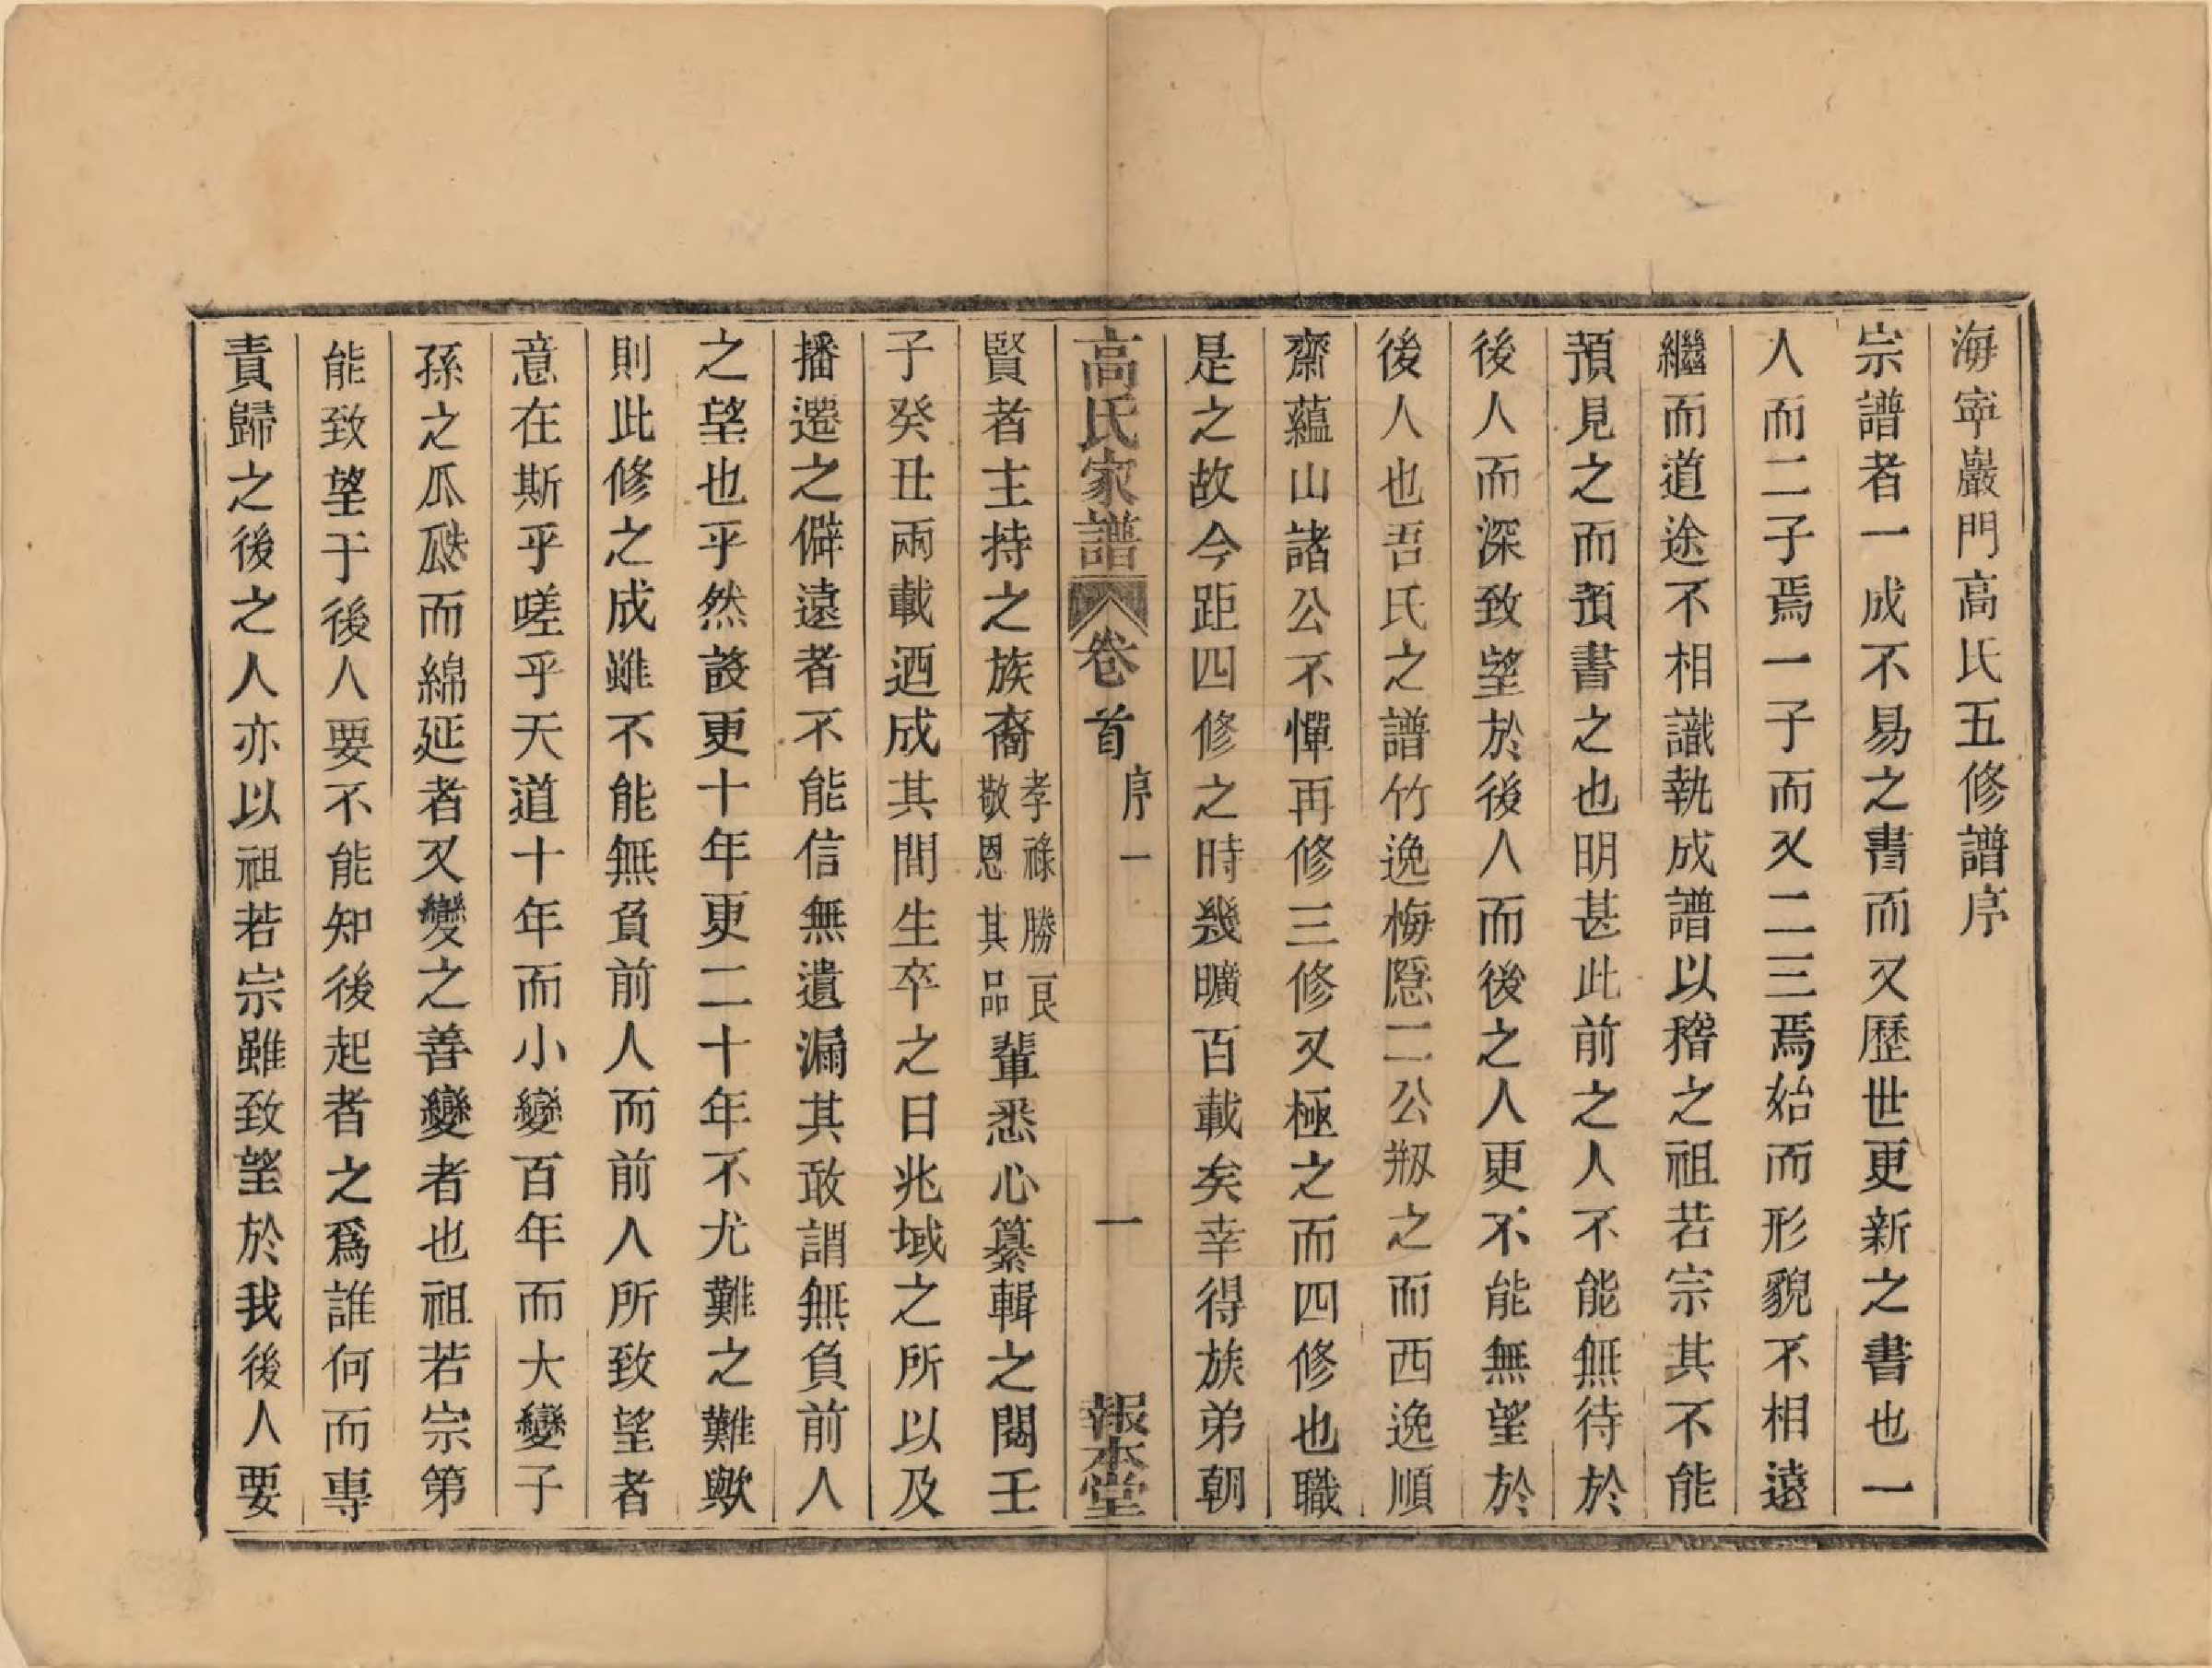 海寧巖門高氏五修譜序
宗譜者一成不易之書而又歷世更新之書也一
人而二子焉一子而又二三焉始而形貌不相遠
繼而道途不相識執成譜以稽之祖若宗其不能
預見之而預書之也明甚此前之人不能無待於
後人而深致望於後人而後之人更不能無望於
後人也吾氏之譜竹逸梅隱二公刱之而西逸順
齋蘊山諸公不憚再修三修又極之而四修也職
是之故今距四修之時幾曠百載矣幸得族弟朝
高氏家譜 卷首 序一 一 報本堂
賢者主持之族裔孝祿勝良敬恩其品輩悉心纂輯之閱壬
子癸丑兩載迺成其間生卒之日兆域之所以及
播遷之僻遠者不能信無遺漏其敢謂無負前人
之望也乎然設更十年更二十年不尤難之難歟
則此修之成雖不能無負前人而前人所致望者
意在斯乎嗟乎天道十年而小變百年而大變子
孫之瓜瓞而綿延者又變之善變者也祖若宗第
能致望于後人要不能知後起者之爲誰何而專
責歸之後之人亦以祖若宗雖致望於我後人要